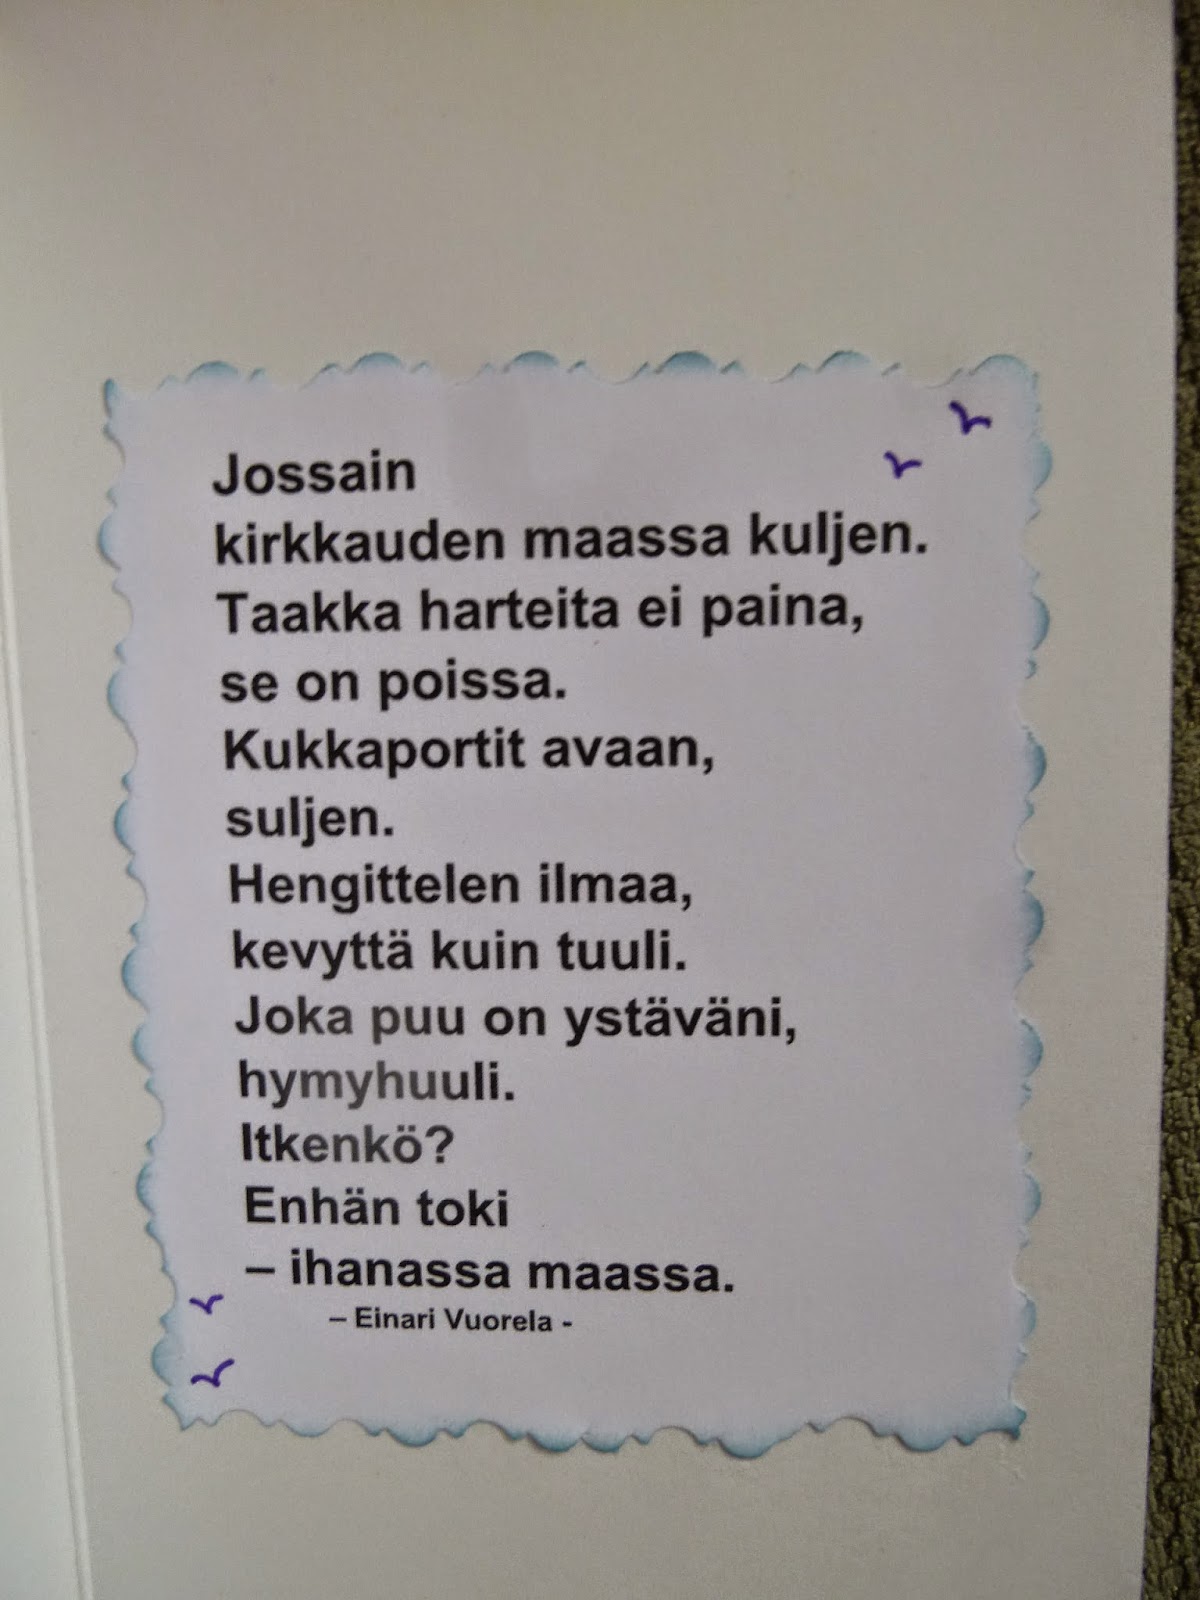 Jossain
kirkkauden maassa kuljen.
Taakka harteita ei paina,
se on poissa.
Kukkaportit avaan,
suljen.
Hengittelen ilmaa,
kevyttä kuin tuuli.
Joka puu on ystäväni,
hymyhuuli.
Itkenkö?
Enhän toki
– ihanassa maassa.
– Einari Vuorela -